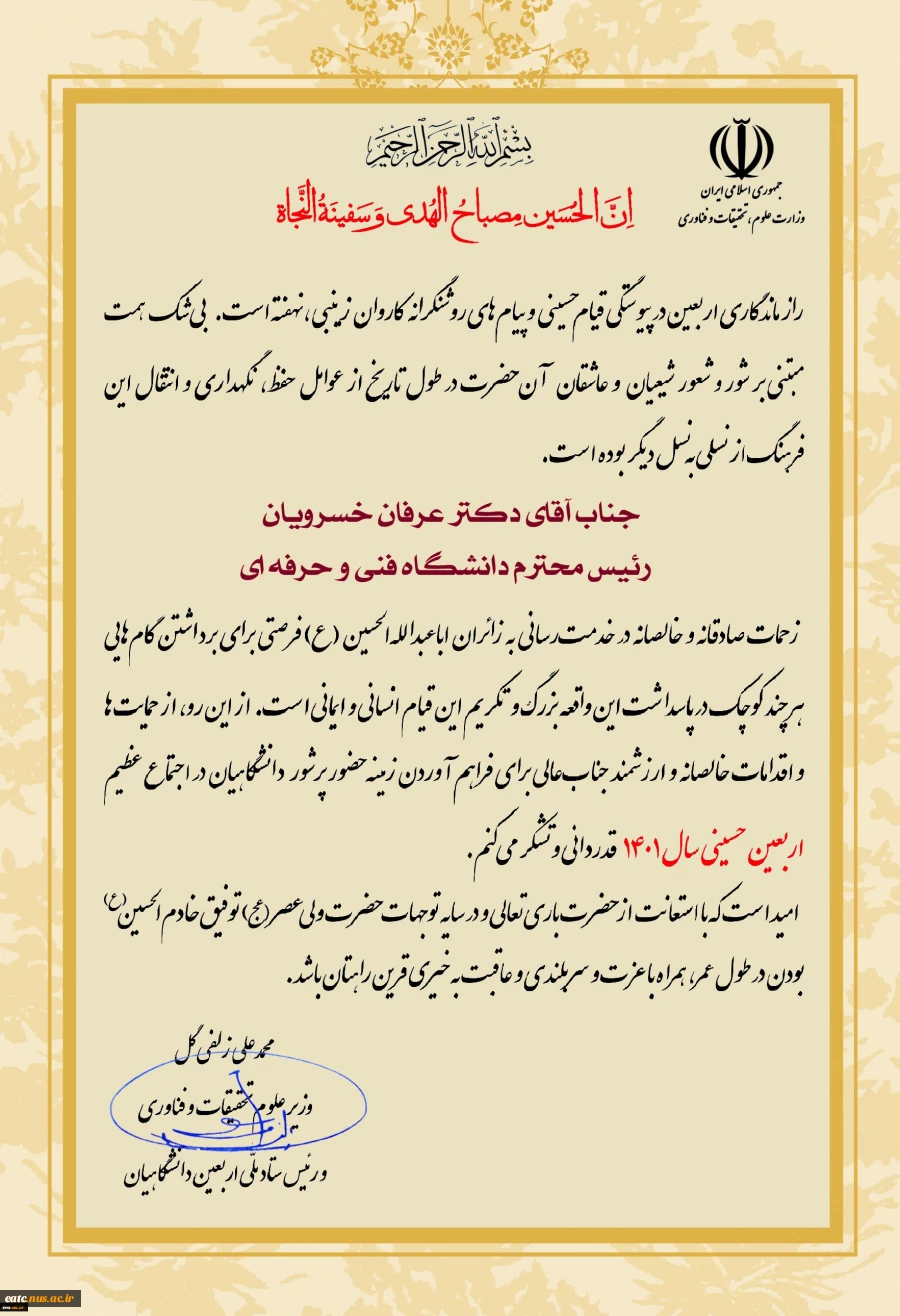 بسم الله الرحمن الرحیم
جمهوری اسلامی ایران
وزارت علوم، تحقیقات و فناوری
اِنَّ الحُسَین مِصباحُ الهُدی وَ سَفینَةُ النَّجاة
راز ماندگاری اربعین در پیوستگی قیام حسینی و پیام های روشنگرانه کاروان زینبی، نهفته است. بی شک همت
مبتنی بر شور و شعور شیعیان و عاشقان آن حضرت در طول تاریخ از عوامل حفظ، نگهداری و انتقال این
فرهنگ از نسلی به نسل دیگر بوده است.
جناب آقای دکتر عرفان خسرویان
رئیس محترم دانشگاه فنی و حرفه ای
زحمات صادقانه و خالصانه در خدمت رسانی به زائران اباعبدالله الحسین (ع) فرصتی برای برداشتن گام هایی
هر چند کوچک در پاسداشت این واقعه بزرگ و تکریم این قیام انسانی و ایمانی است. از این رو، از حمایت ها
و اقدامات خالصانه و ارزشمند جناب عالی برای فراهم آوردن زمینه حضور پرشور دانشگاهیان در اجتماع عظیم
اربعین حسینی سال ۱۴۰۱ قدردانی و تشکر می کنم.
امید است که با استعانت از حضرت باری تعالی و در سایه توجهات حضرت ولی عصر (عج) توفیق خادم الحسین (ع)
بودن در طول عمر، همراه با عزت و سربلندی و عاقبت به خیری قرین راهتان باشد.
محمد علی زلفی گل
وزیر علوم تحقیقات و فناوری
و رئیس ستاد ملّی اربعین دانشگاهیان
eatc.nus.ac.ir